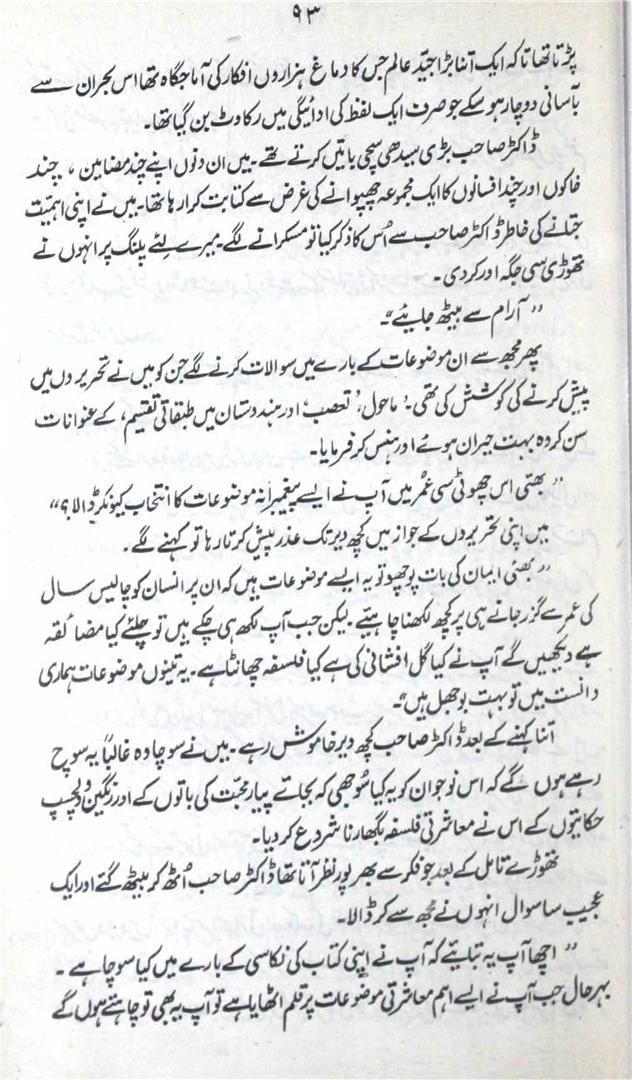 ۹۳
پڑتا تھا تاکہ ایک اتنا بڑا جیّد عالم جس کا دماغ ہزاروں افکار کی آماجگاہ تھا اس بحران سے
بآسانی دوچار ہو سکے جو صرف ایک لفظ کی ادائیگی میں رکاوٹ بن گیا تھا۔
ڈاکٹر صاحب بڑی سیدھی سچی باتیں کرتے تھے۔ میں ان دنوں اپنے چند مضامین، چند
خاکوں اور چند افسانوں کا ایک مجموعہ چھپوانے کی غرض سے کتابت کرا رہا تھا۔ میں نے اپنی اہمیّت
جتانے کی خاطر ڈاکٹر صاحب سے اُس کا ذکر کیا تو مسکرانے لگے۔ میرے لئے پلنگ پر انہوں نے
تھوڑی سی جگہ اور کر دی۔
”آرام سے بیٹھ جائیے“۔
پھر مجھ سے ان موضوعات کے بارے میں سوالات کرنے لگے جن کو میں نے تحریروں میں
پیش کرنے کی کوشش کی تھی۔ ’ماحول‘، ’تعصب‘ اور ہندوستان میں طبقاتی تقسیم، کے عنوانات
سن کر وہ بہت حیران ہوئے اور ہنس کر فرمایا۔
”بھئی اس چھوٹی سی عُمر میں آپ نے ایسے پیغمبرانہ موضوعات کا انتخاب کیونکر کر ڈالا؟“
میں اپنی تحریروں کے جواز میں کچھ دیر تک عذر پیش کرتا رہا تو کہنے لگے۔
”بھئی ایمان کی بات پوچھو تو یہ ایسے موضوعات ہیں کہ ان پر انسان کو چالیس سال
کی عمر سے گزر جانے ہی پر کچھ لکھنا چاہیئے۔ لیکن جب آپ لکھ ہی چکے ہیں تو چلئے کیا مضائقہ
ہے دیکھیں گے آپ نے کیا گل افشانی کی ہے کیا فلسفہ چھانٹا ہے۔ یہ تینوں موضوعات ہماری
دانست میں تو بہت بوجھل ہیں“۔
اتنا کہنے کے بعد ڈاکٹر صاحب کچھ دیر خاموش رہے۔ میں نے سوچا وہ غالباً یہ سوچ
رہے ہوں گے کہ اس نوجوان کو یہ کیا سُوجھی کہ بجائے پیار محبّت کی باتوں کے اور رنگین و دلچسپ
حکایتوں کے اس نے معاشرتی فلسفہ بگھارنا شروع کر دیا۔
تھوڑے تامل کے بعد جو فکر سے بھرپور نظر آتا تھا ڈاکٹر صاحب اُٹھ کر بیٹھ گئے اور ایک
عجیب سا سوال انہوں نے مجھ سے کر ڈالا۔
”اچھا آپ یہ بتایئے کہ آپ نے اپنی کتاب کی نکاسی کے بارے میں کیا سوچا ہے۔
بہر حال جب آپ نے ایسے اہم معاشرتی موضوعات پر قلم اٹھایا ہے تو آپ یہ بھی تو چاہتے ہوں گے